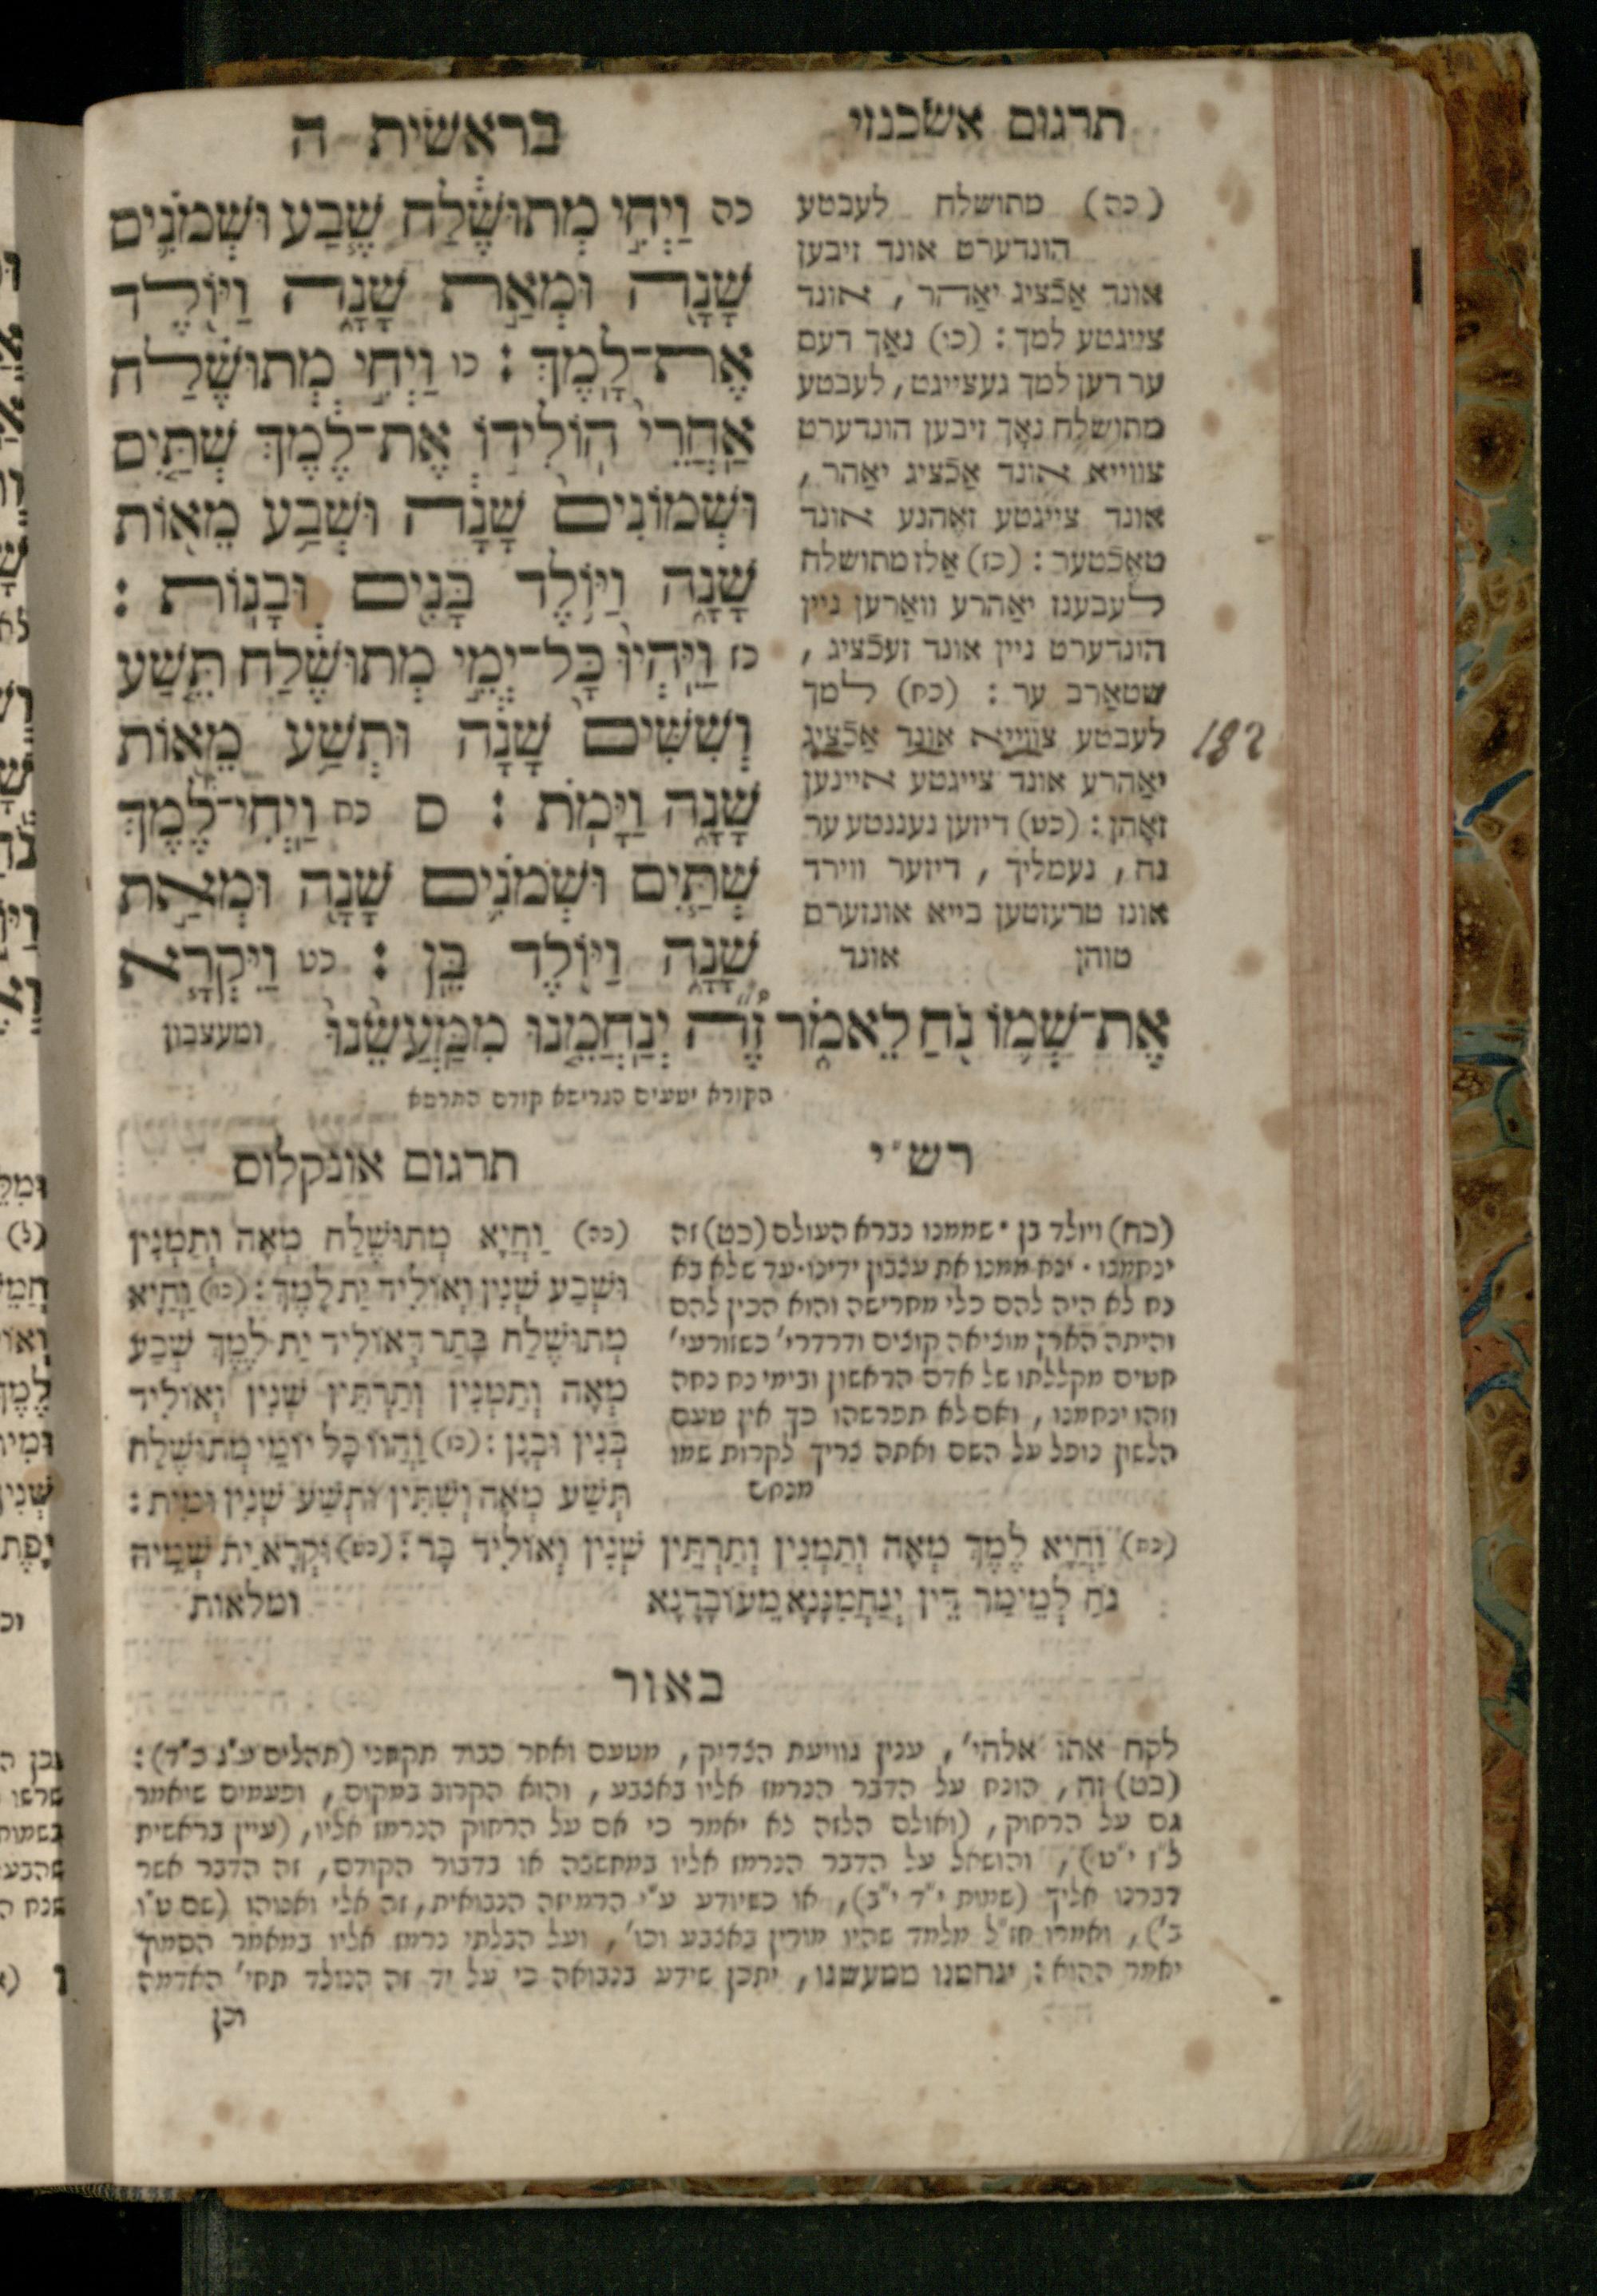 תרגום אשכנזי
בראשית ה
(כה) מתושלח לעבטע
הונדערט אונד זיבען
אונד אַכֿציג יאַהר, אונד
צייגטע למך: (כו) נאַך דעם
ער דען למך געצייגט, לעבטע
מתושלח נאָך זיבען הונדערט
צווייא אונד אַכֿציג יאַהר,
אונד צייגטע זאֶהנע אונד
טאֶכֿטער: (כז) אַלז מתושלח
לעבענז יאַהרע וואַרען ניין
הונדערט ניין אונד זעכֿציג,
שטאַרב ער: (כח) למך
לעבטע צווייא אונד אַכֿציג
יאַהרע אונד צייגטע איינען
זאָהן: (כט) דיזען נעננטע ער
נח, נעמליך, דיזער ווירד
אונז טרעזטען בייא אונזערם
טוהן אונד
182
כה וַיְחִי מְתוּשֶׁלַח שֶׁבַע וּשְׁמֹנִים
שָׁנָה וּמְאַת שָׁנָה וַיּוֹלֶד
אֶת־לָמֶךְ: כו וַיְחִי מְתוּשֶׁלַח
אַחֲרֵי הוֹלִידוֹ אֶת־לֶמֶךְ שְׁתַּיִם
וּשְׁמוֹנִים שָׁנָה וּשְׁבַע מֵאוֹת
שָׁנָה וַיּוֹלֶד בָּנִים וּבָנוֹת:
כז וַיִּהְיוּ כָּל־יְמֵי מְתוּשֶׁלַח תֵּשַׁע
וְשִׁשִּׁים שָׁנָה וּתְשַׁע מֵאוֹת
שָׁנָה וַיָּמֹת: ס כח וַיְחִי־לֶמֶךְ
שְׁתַּיִם וּשְׁמֹנִים שָׁנָה וּמְאַת
שָׁנָה וַיּוֹלֶד בֵּן: כט וַיִּקְרָא
אֶת־שְׁמוֹ נֹחַ לֵאמֹר זֶה יְנַחֲמֵנוּ מִמַּעֲשֵׂנוּ ומעצבון
הקורא יטעים הגרישא קודם התרסא
רש״י
(כח) ויולד בן · שממנו נברא העולם (כט) זה
ינחמנו · ינח ממנו את עצבון ידינו · עד שלא בא
נח לא היה להם כלי מחרישה והוא הכין להם
והיתה הארץ מוציאה קוצים ודרדרי׳ כשזורעי׳
חטים מקללתו של אדם הראשון ובימי נח נחה
וזהו ינחמנו, ואם לא תפרשהו כך אין טעם
הלשון נופל על השם ואתה צריך לקרות שמו
מנחם
תרגום אונקלוס
(כה) וַחֲיָא מְתוּשֶׁלַח מְאָה וְתַמְנִין
וּשְׁבַע שְׁנִין וְאוֹלִיד יַת לָמֶךְ: (כו) וַחֲיָא
מְתוּשֶׁלַח בָּתַר דְּאוֹלִיד יַת לֶמֶךְ שְׁבַע
מְאָה וְתַמְנִין וְתַרְתֵּין שְׁנִין וְאוֹלִיד
בְּנִין וּבְנָן: (כז) וַהֲווֹ כָּל יוֹמֵי מְתוּשֶׁלַח
תְּשַׁע מְאָה וְשִׁתִּין וּתְשַׁע שְׁנִין וּמִית:
(כח) וַחֲיָא לֶמֶךְ מְאָה וְתַמְנִין וְתַרְתֵּין שְׁנִין וְאוֹלִיד בָּר: (כט) וּקְרָא יַת שְׁמֵיהּ
נֹחַ לְמֵימַר דֵּין יְנַחֲמִנָּנָא מֵעוֹבָדָנָא וטלאות
באור
לקח אתו אלהי׳, ענין גוויעת הצדיק, מטעם ואחר כבוד תקחני (תהלים ע״ג כ״ד):
(כט) זה, הונח על הדבר הנרמז אליו באצבע, והוא הקרוב במקום, ופעמים שיאמר
גם על הרחוק, (ואולם הלזה לא יאמר כי אם על הרחוק הנרמז אליו, (עיין בראשית
ל״ז י״ט), והושאל על הדבר הנרמז אליו במחשבה או בדבור הקודם, זה הדבר אשר
דברנו אליך (שמות י״ד י״ב), או כשיודע ע״י הרמיזה הנבואית, זה אלי ואנוהו (שם ט״ו
ב׳), ואמרו חז״ל מלמד שהיו מורין באצבע וכו׳, ועל הבלתי נרמז אליו במאמר הסמוך
יאמר ההוא: ינחמנו ממעשנו, יתכן שידע בנבואה כי על יד זה הנולד תחי׳ האדמה
וכן